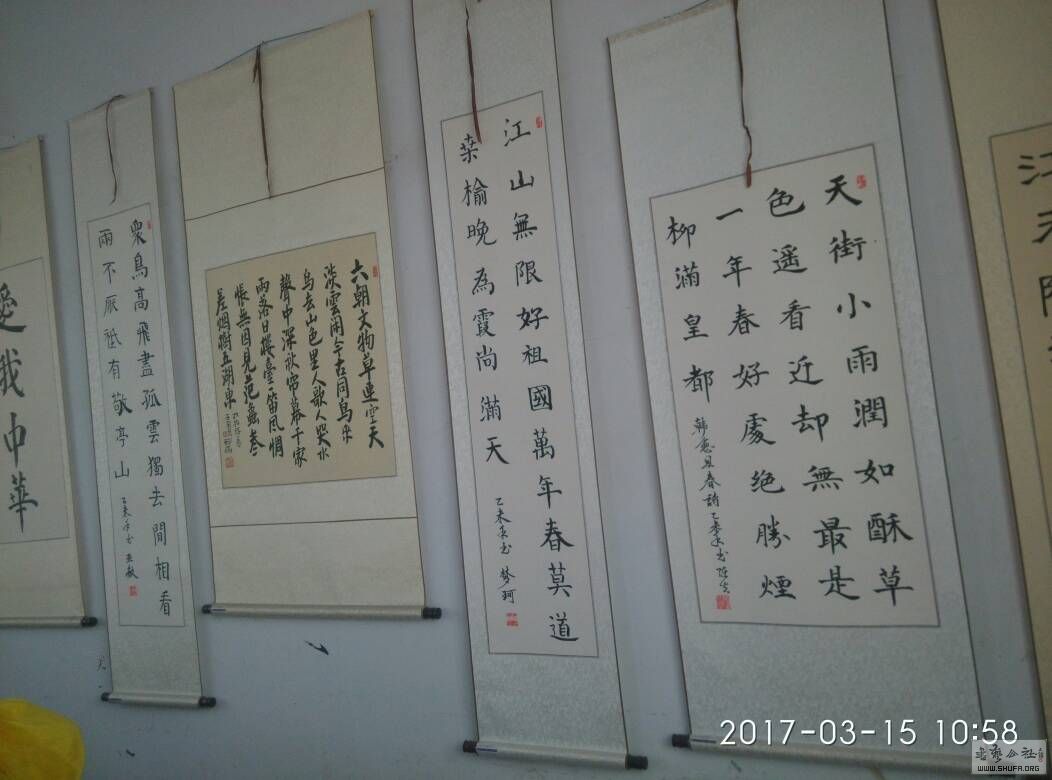 江
天街小雨潤如酥草
色遥看近却無最是
一年春好處絶勝煙
柳滿皇都
韓愈早春詩乙未冬书
江山無限好祖國萬年春莫道
桑榆晚為霞尚滿天
乙未冬书 梦珂
六朝文物草連空天
淡雲閑今古同鳥來
鳥去山色里人歌人哭水
聲中深秋帘幕千家
雨落日樓臺笛風惆
悵無因見范蠡参
差烟樹五湖東
衆鳥高飛盡孤雲獨去閒相看
兩不厭祗有敬亭山
乙未冬书
愛我中華
2017-03-15 10:58
WWW.SHUFA.ORG